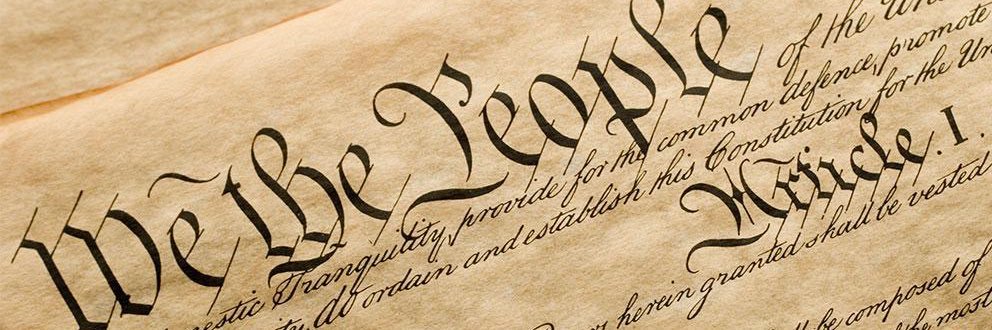 We the People of the
estic Tranquility, provide for the common defence, promote
do ordain and establish this Constitution for the Un
Article. I.
herein granted shall be vested
be composed of
the most